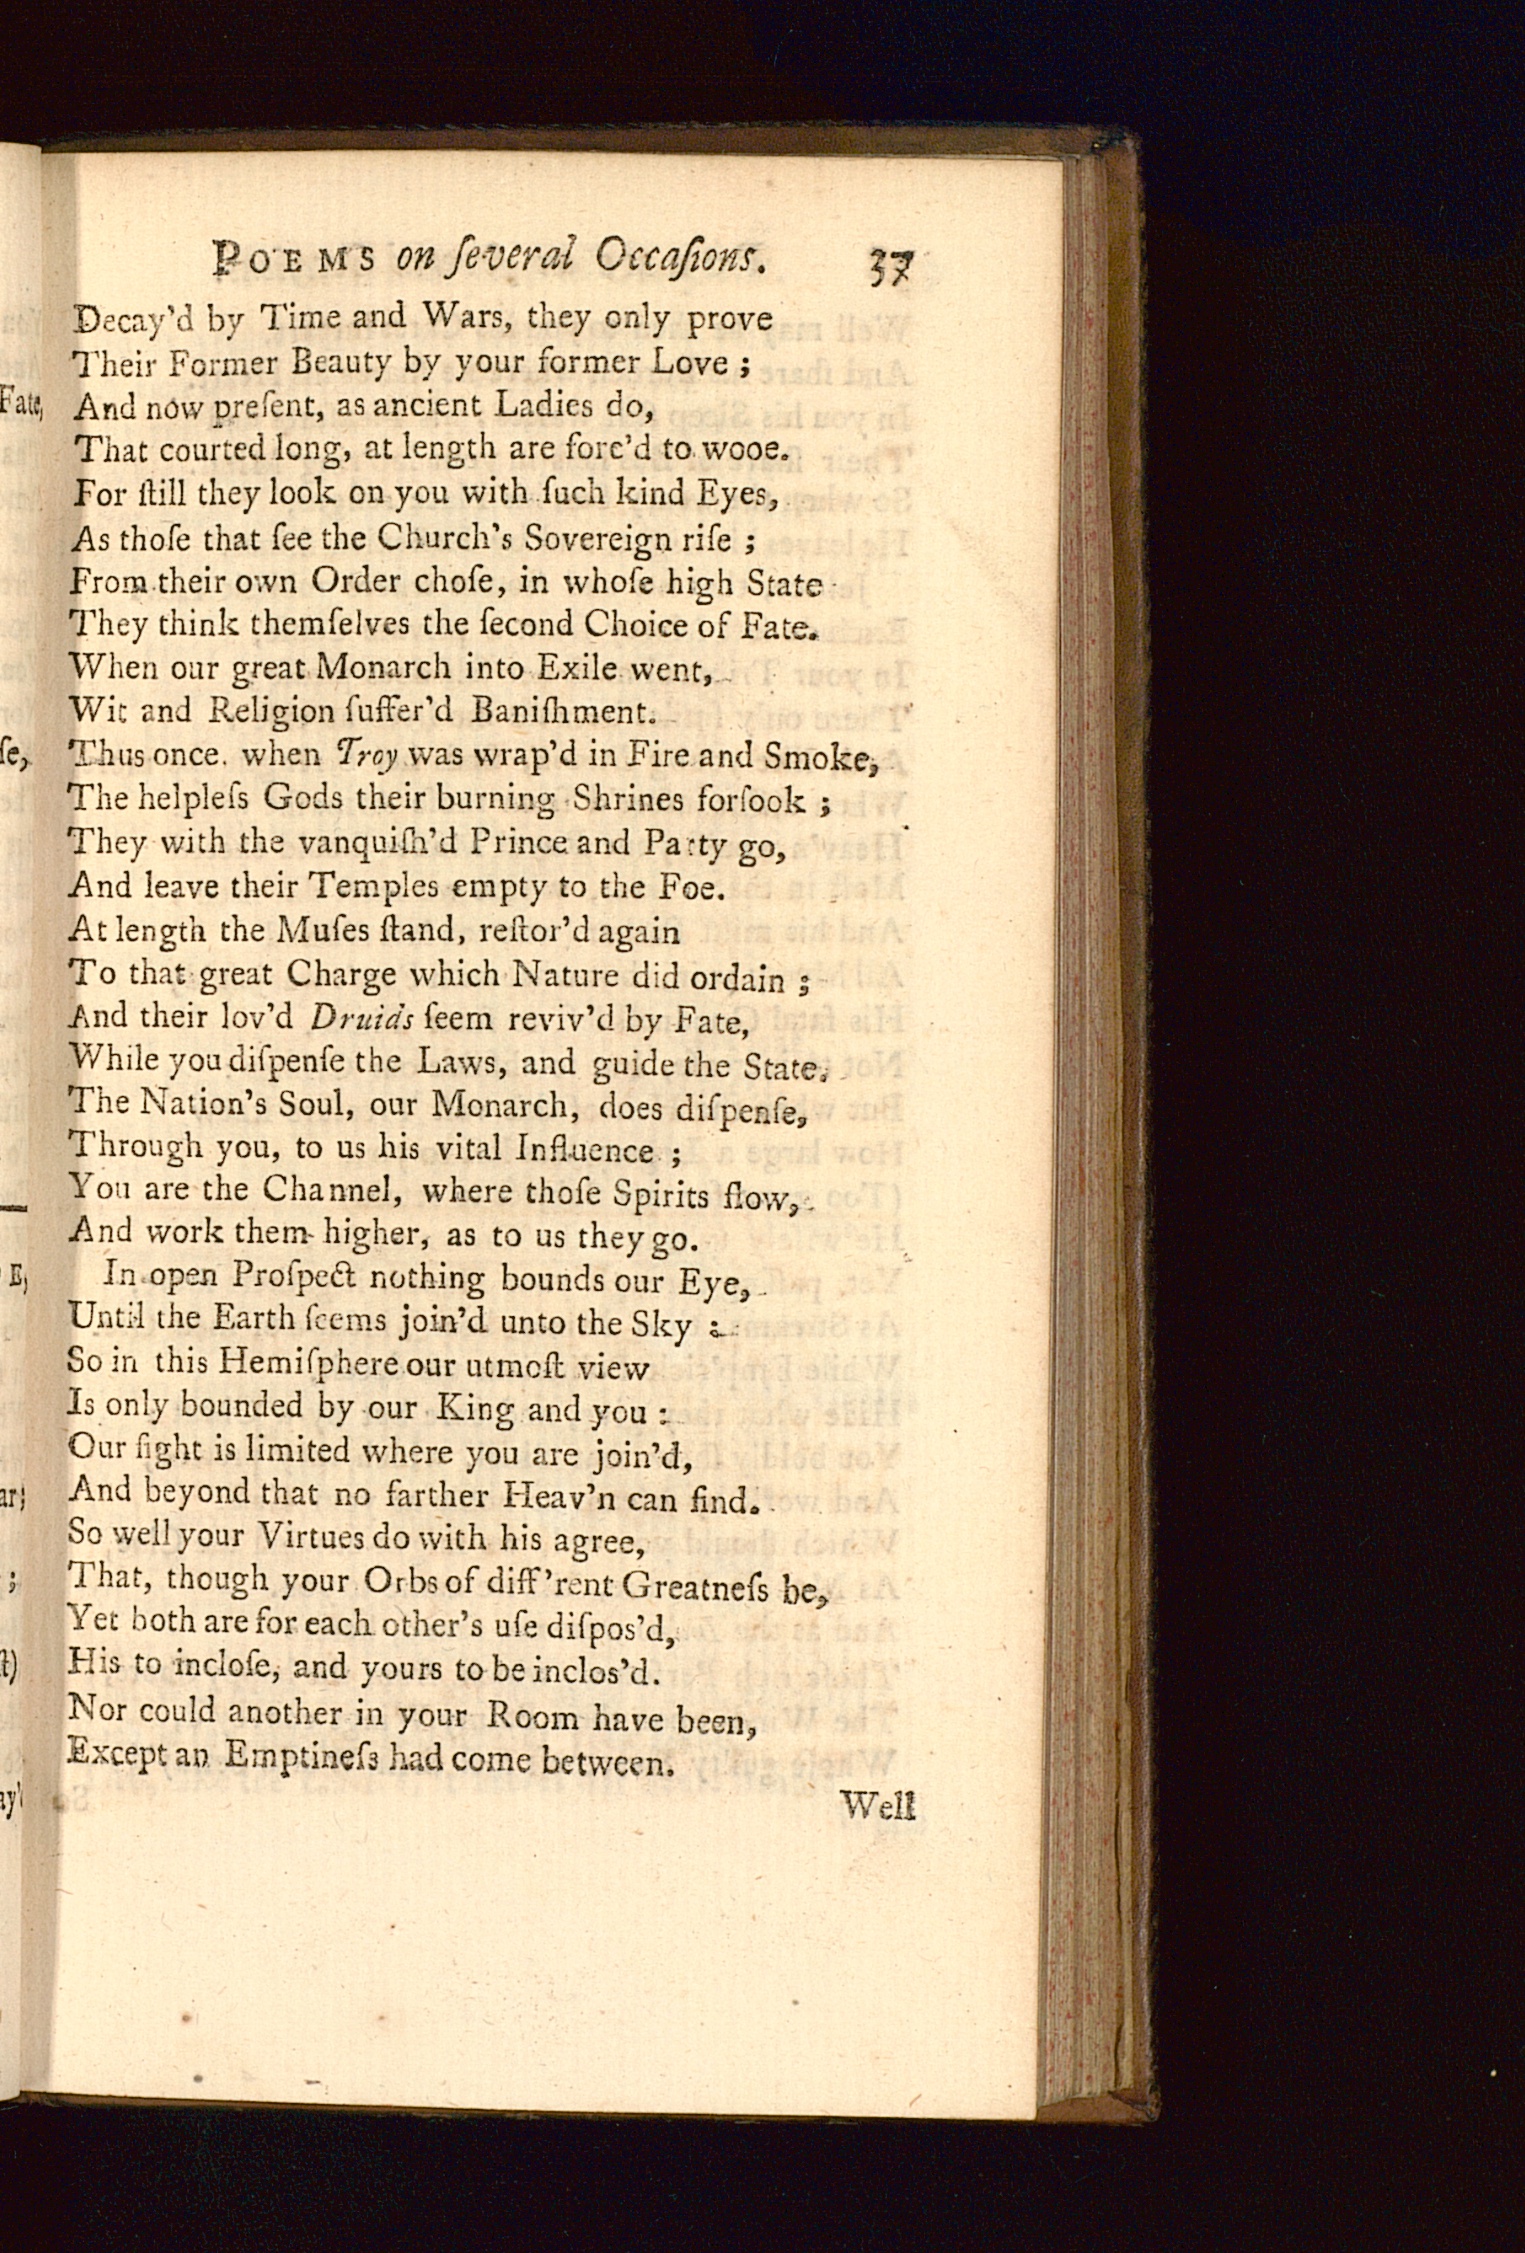 POEMS on ſeveral Occaſions. 37
Decay'd by Time and Wars, they only prove
Their Former Beauty by your former Love ;
And now preſent, as ancient Ladies do,
That courted long, at length are forc'd to wooe.
For ſtill they look on you with ſuch kind Eyes,
As thoſe that ſee the Church's Sovereign riſe ;
From their own Order choſe, in whoſe high State
They think themſelves the ſecond Choice of Fate.
When our great Monarch into Exile went,
Wit and Religion ſuffer'd Baniſhment.
Thus once, when Troy was wrap'd in Fire and Smoke,
The helpleſs Gods their burning Shrines forſook ;
They with the vanquiſh'd Prince and Party go,
And leave their Temples empty to the Foe.
At length the Muſes ſtand, reſtor'd again
To that great Charge which Nature did ordain ;
And their lov'd Druids ſeem reviv'd by Fate,
While you diſpenſe the Laws, and guide the State.
The Nation's Soul, our Monarch, does diſpenſe,
Through you, to us his vital Influence ;
You are the Channel, where thoſe Spirits flow,
And work them higher, as to us they go.
In open Proſpect nothing bounds our Eye,
Until the Earth ſeems join'd unto the Sky :
So in this Hemiſphere our utmoſt view
Is only bounded by our King and you :
Our ſight is limited where you are join'd,
And beyond that no farther Heav'n can find.
So well your Virtues do with his agree,
That, though your Orbs of diff'rent Greatneſs be,
Yet both are for each other's uſe diſpos'd,
His to incloſe, and yours to be inclos'd.
Nor could another in your Room have been,
Except an Emptineſs had come between.
Well